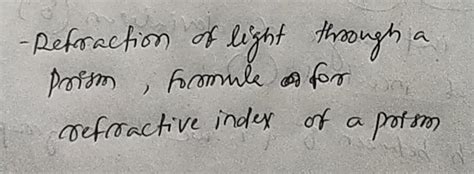 -Refraction of light through a
prism, formule for
refractive index of a prism